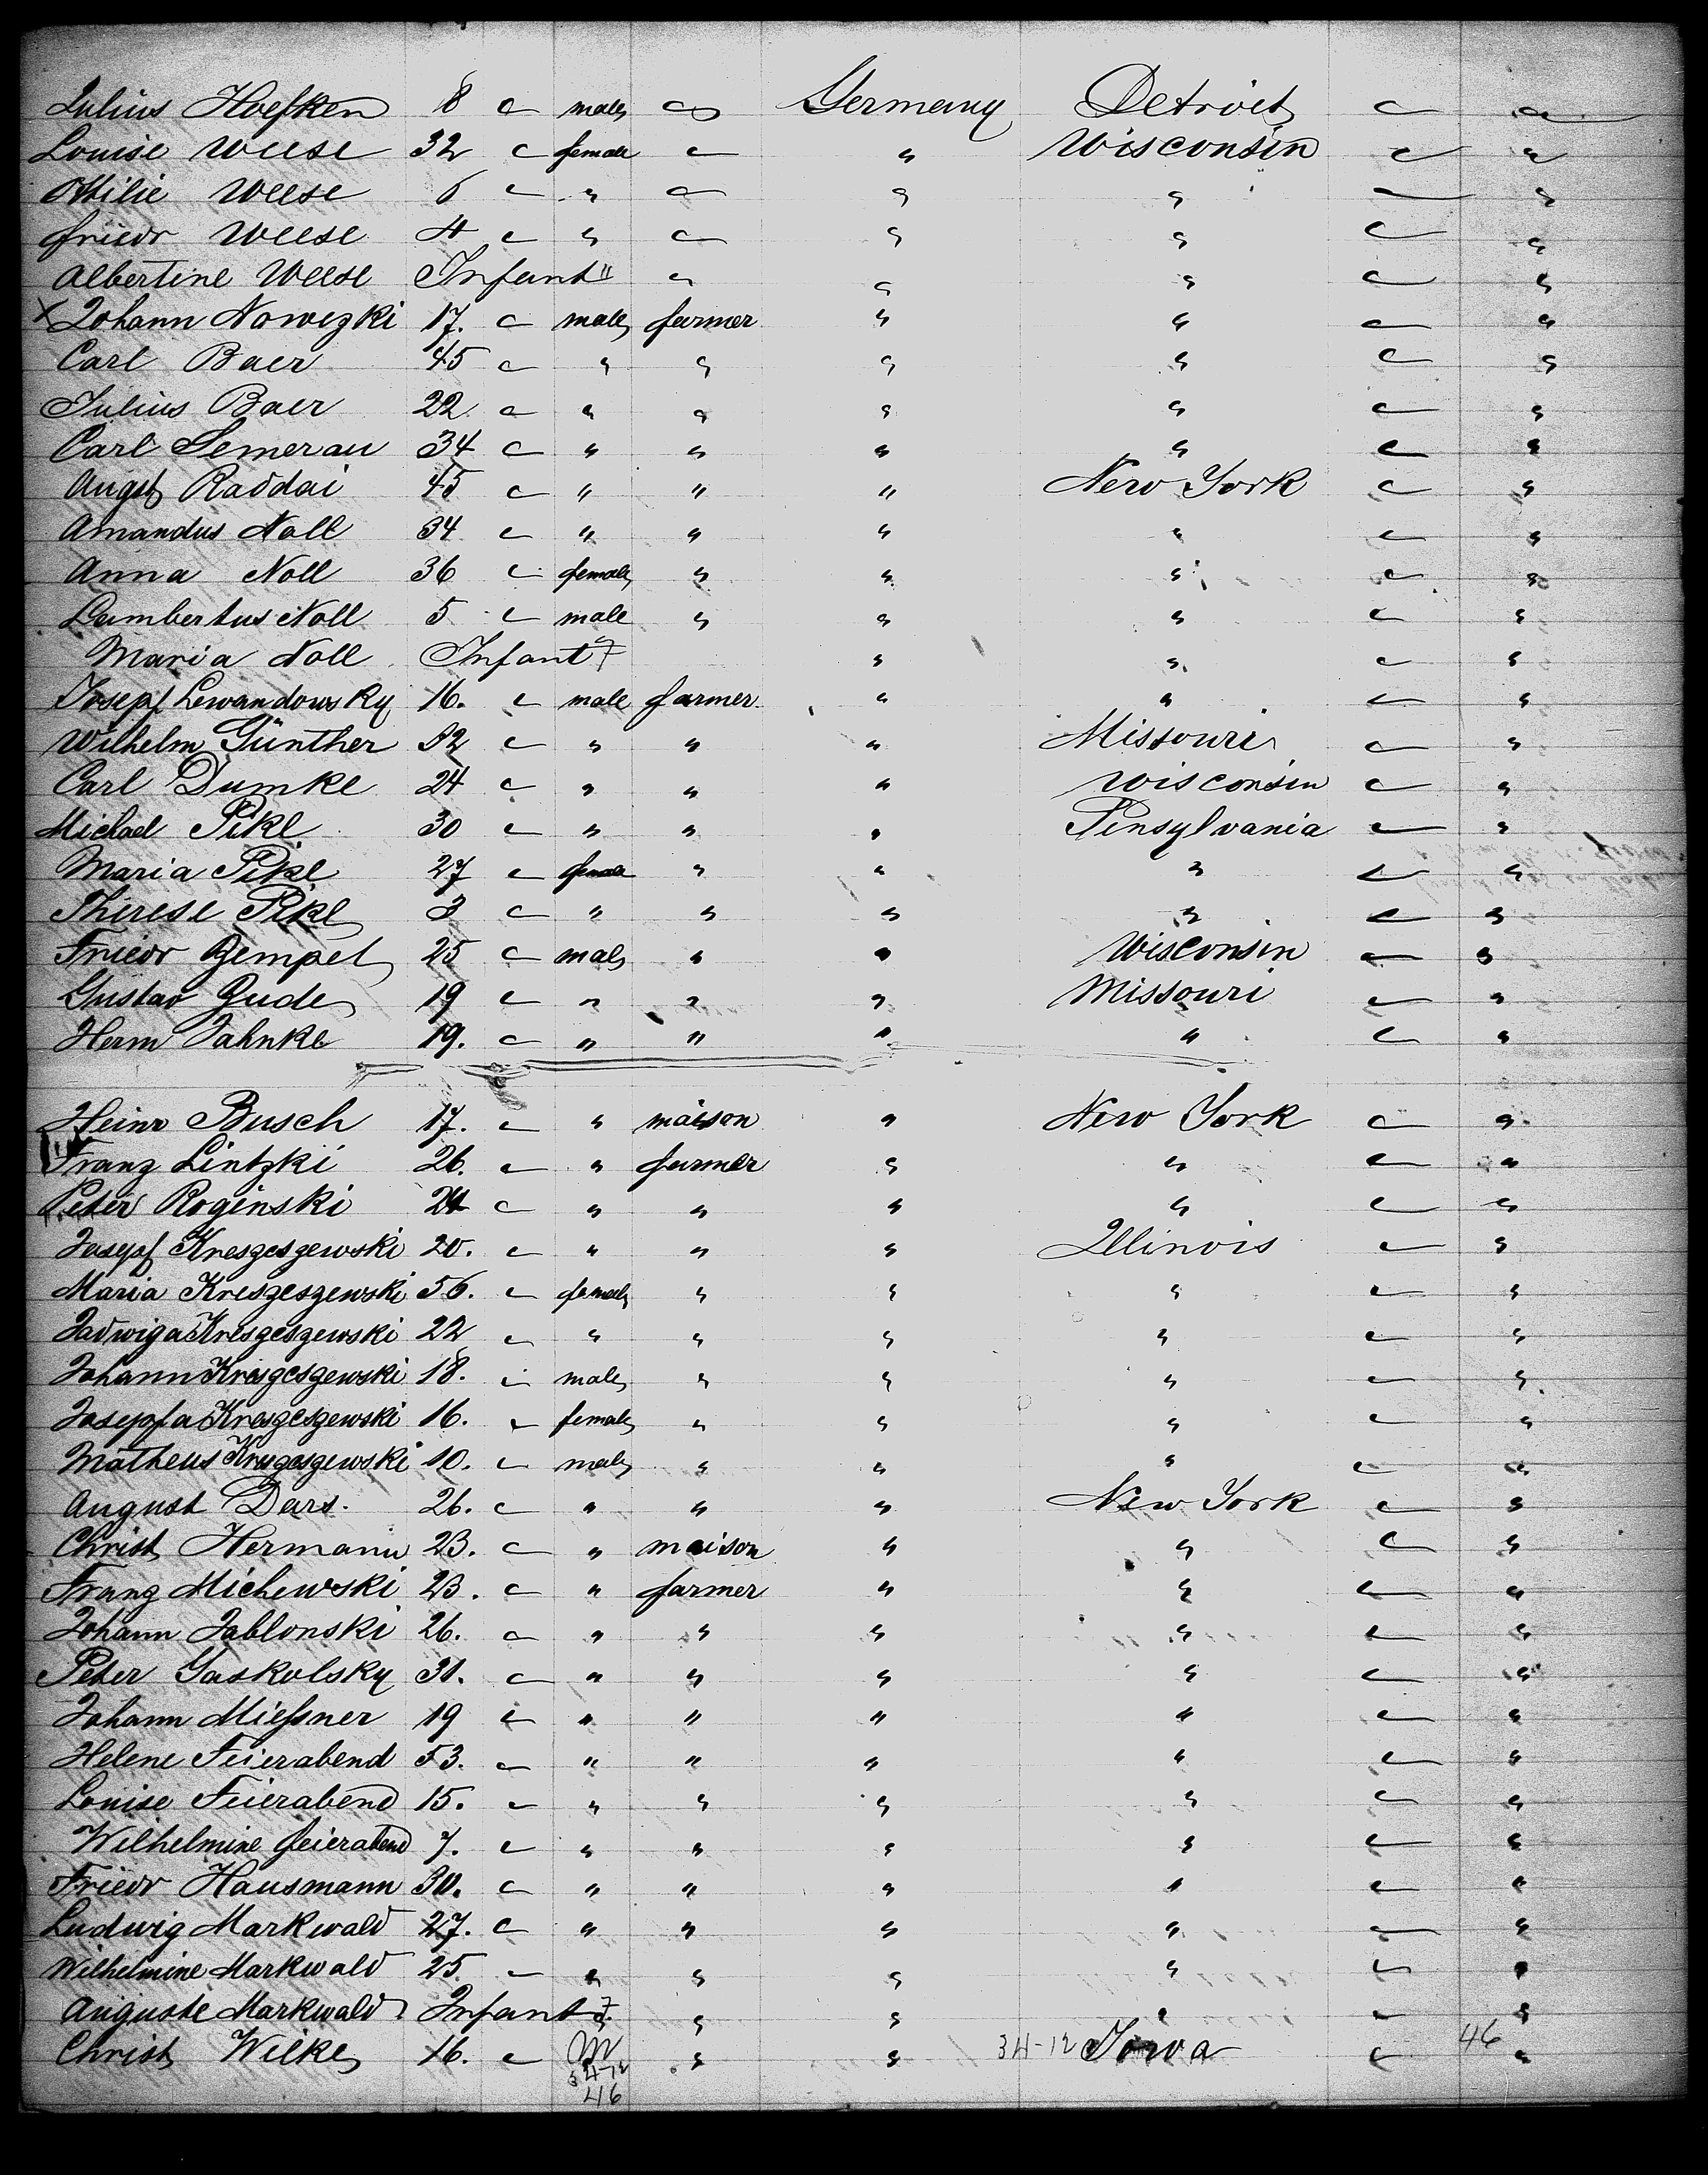 Julius Hoefken 8 " male " Germany Detroit " "
Louise Weese 32 " female " " Wisconsin " "
Ottilie Weese 6 " " " " " " "
Friedr Weese 4 " " " " " " "
Albertine Weese Infant " " " " " "
X Johann Nowezki 17. " male farmer " " " "
Carl Baer 45 " " " " " " "
Julius Baer 22 " " " " " " "
Carl Semerau 34 " " " " " " "
Augst Raddai 45 " " " " New York " "
Amandus Noll 34 " " " " " " "
Anna Noll 36 " female " " " " "
Lambertus Noll 5 " male " " " " "
Maria Noll Infant " " " "
Josepf Lewandowsky 16. " male farmer " " " "
Wilhelm Günther 32 " " " " Missouri " "
Carl Dumke 24 " " " " Wisconsin " "
Michael Pikl 30 " " " " Pensylvania " "
Maria Pikl 27 " female " " " " "
Therese Pikl 3 " " " " " " "
Friedr Zempel 25 " male " " Wisconsin " "
Gustav Zude 19 " " " " Missouri " "
Herm Jahnke 19. " " " " " " "
Heinr Busch 17. " " maison " New York " "
Franz Lintzki 26. " " farmer " " " "
Peter Roginski 24 " " " " " " "
Josepf Kreszeszewski 20. " " " " Illinois " "
Maria Kreszeszewski 56. " female " " " " "
Jadwiga Kreszeszewski 22 " " " " " " "
Johann Kreszeszewski 18. " male " " " " "
Josepfa Kreszeszewski 16. " female " " " " "
Matheus Kreszeszewski 10. " male " " " " "
August Dars. 26. " " " " New York " "
Christ Hermann 23. " " maison " " " "
Franz Michewski 23. " " farmer " " " "
Johann Jablonski 26. " " " " " " "
Peter Gaskolsky 31. " " " " " " "
Johann Mießner 19 " " " " " " "
Helene Feierabend 53. " " " " " " "
Louise Feierabend 15. " " " " " " "
Wilhelmine Feierabend 7. " " " " " " "
Friedr Hausmann 30. " " " " " " "
Ludwig Markwald 27. " " " " " " "
Wilhelmine Markwald 25 " " " " " " "
Auguste Markwald Infant " " " " "
Christ Wilke 16. " M " " 34-12 Iowa " 46 "
34-12
46